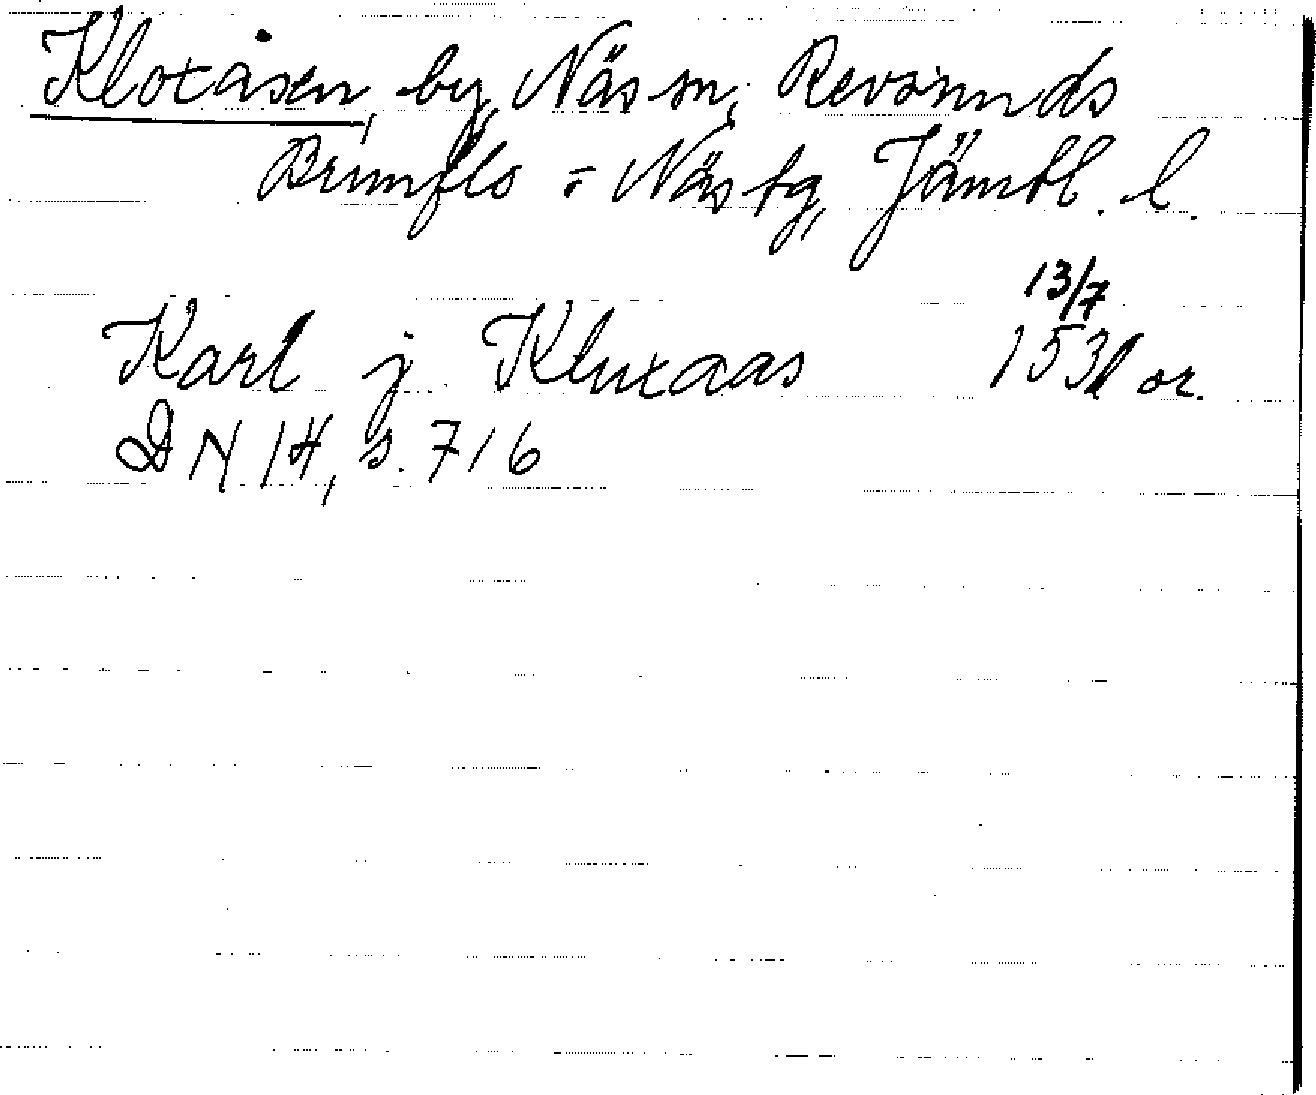 Kloxåsen, by, Näs sn, Revsunds
Brunflo = Näs tg, Jämtl. l.
13/7
Karl j Kluxaas 1531 or.
DN 14, s. 716